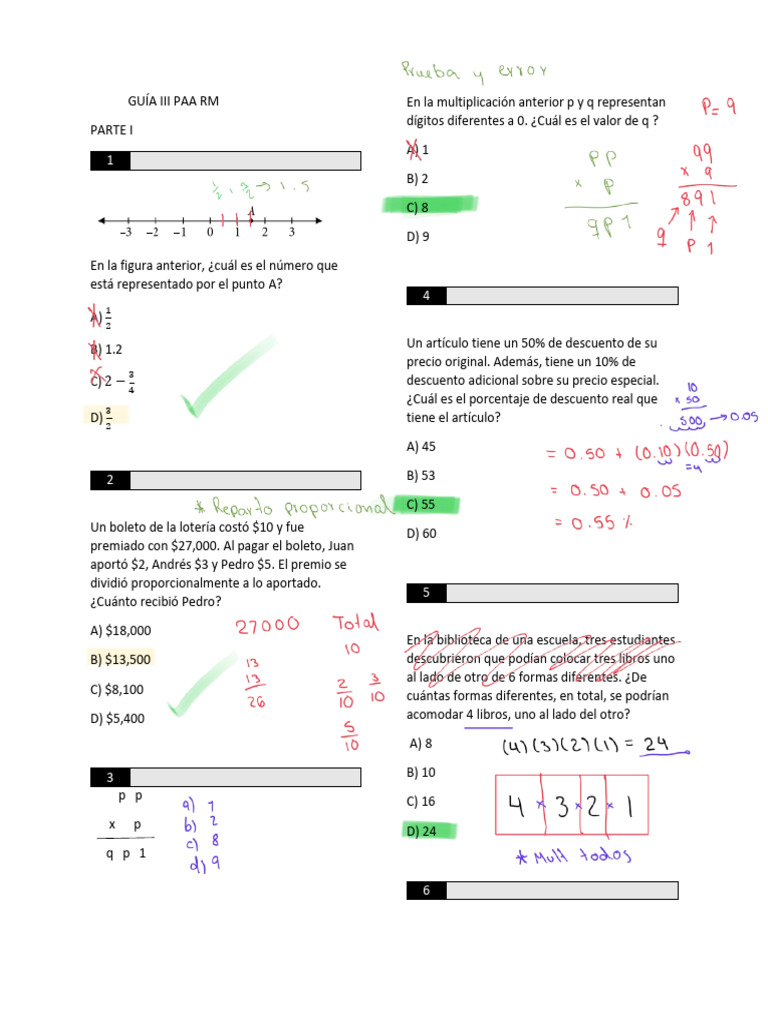 GUÍA III PAA RM
PARTE I
1
1/2 , 3/2 → 1.5
A
−3 −2 −1 0 1 2 3
En la figura anterior, ¿cuál es el número que
está representado por el punto A?
A) 1/2
B) 1.2
C) 2 − 3/4
D) 3/2
2
* Reparto proporcional
Un boleto de la lotería costó $10 y fue
premiado con $27,000. Al pagar el boleto, Juan
aportó $2, Andrés $3 y Pedro $5. El premio se
dividió proporcionalmente a lo aportado.
¿Cuánto recibió Pedro?
A) $18,000
B) $13,500
C) $8,100
D) $5,400
27000
Total
10
13
13
26
2/10 3/10
5/10
3
p p
x p
q p 1
a) 1
b) 2
c) 8
d) 9
Prueba y error
En la multiplicación anterior p y q representan
dígitos diferentes a 0. ¿Cuál es el valor de q ?
A) 1
B) 2
C) 8
D) 9
PP
x P
qP1
P= 9
99
x 9
891
q P 1
4
Un artículo tiene un 50% de descuento de su
precio original. Además, tiene un 10% de
descuento adicional sobre su precio especial.
¿Cuál es el porcentaje de descuento real que
tiene el artículo?
A) 45
B) 53
C) 55
D) 60
10
x 50
.500 → 0.05
= 0.50 + (0.10)(0.50)
=4
= 0.50 + 0.05
= 0.55 %
5
En la biblioteca de una escuela, tres estudiantes
descubrieron que podían colocar tres libros uno
al lado de otro de 6 formas diferentes. ¿De
cuántas formas diferentes, en total, se podrían
acomodar 4 libros, uno al lado del otro?
A) 8
B) 10
C) 16
D) 24
(4)(3)(2)(1) = 24
4 x 3 x 2 x 1
* Mult todos
6